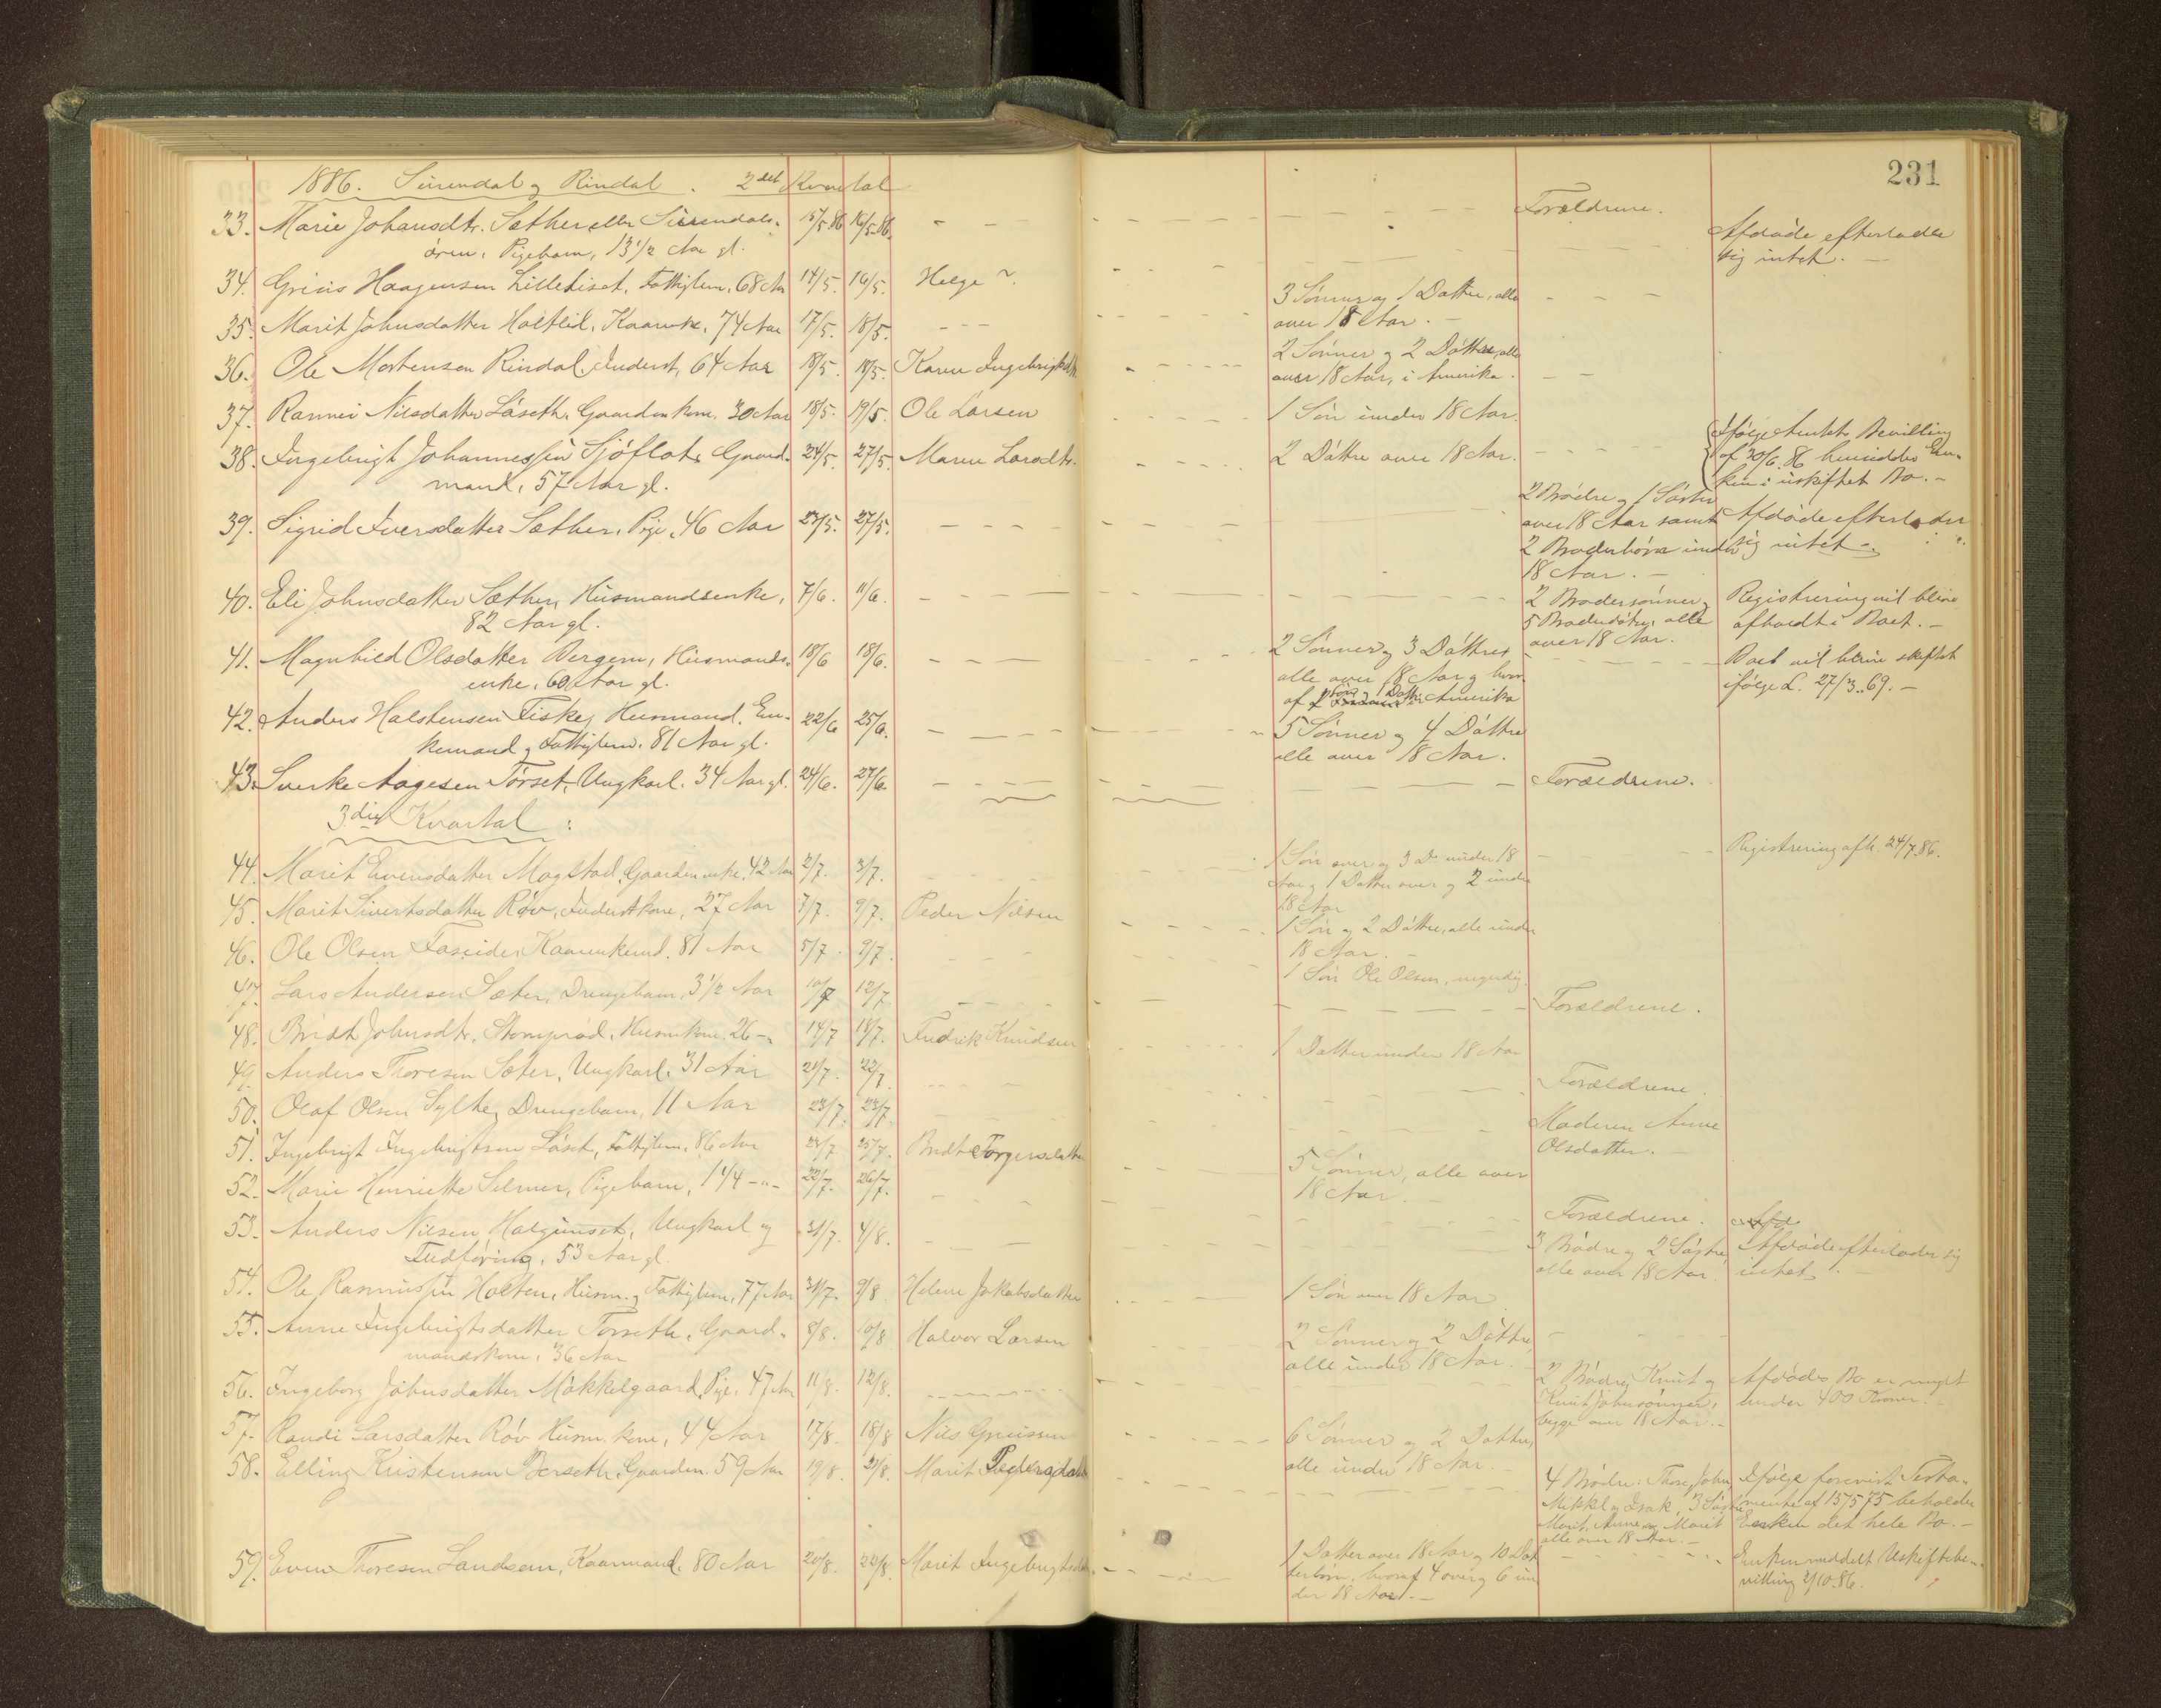 231
1886. Surendal og Rindal. 2det Kvartal
33. Marie Johansdtr. Sæther eller Surendals- 15/5 86 16/5 86. - - Forældrene. Afdøde efterlader
øren, Pigebarn, 13 1/2 Aar gl. sig intet. -
34. Haagensen Lilletiset, Fattiglem, 68 Aar 14/5. 16/5. Helge ~. 3 Sønner og 1 Datter, alle
over 18 Aar. -
35. Marit Johnsdatter Holtlid, Kaarenke, 74 Aar 17/5. 18/5. - - - 2 Sønner og 2 Døttre, alle
over 18 Aar, i Amerika.
36. Ole Mortensen Rindal, Inderst, 64 Aar 18/5. 18/5. Karen Ingebrigtsdtr.
37. Rannei Nilsdatter Løseth, Gaardmkone, 30 Aar 18/5. 19/5. Ole Larsen 1 Søn under 18 Aar.
38. Ingebrigt Johannessen Sjøflot, Gaard- 24/5. 27/5. Maren Larsdtr. 2 Døttre over 18 Aar. Ifølge Amtets Bevilling
mand, 57 Aar gl. af 30/6. 86 hensidder En-
ken i uskiftet Bo. -
39. Sigrid Iversdatter Sæther, Pige, 46 Aar 23/5. 27/5. 2 Brødre og 1 Søster
over 18 Aar samt Afdøde efterlader
2 Broderbørn under sig intet -
18 Aar. -
40. Eli Johnsdatter Sæther, Husmandsenke, 7/6. 11/6. 2 Brodersønner og Registrering vil blive
82 Aar gl. 5 Broderdøtre, alle afholdt i Boet. -
over 18 Aar.
41. Magnhild Olsdatter Bergem, Husmands- 18/6 18/6. 2 Sønner og 3 Døttre, Boet vil blive skiftet
enke, 60 Aar gl. alle over 18 Aar og hvor- ifølge L. 27/3. 69. -
af 1 Søn og 1 Datter i Amerika
42. Anders Halstensen Fiske, Husmand, En- 22/6 25/6. 5 Sønner og 4 Døttre
kemand og Fattiglem. 81 Aar gl. alle over 18 Aar.
43. Sverke Aagesen Tørset, Ungkarl. 34 Aar gl. 24/6. 27/6. Forældrene.
3die Kvartal:
44. Marit Evensdatter Mogstad, Gaardmenke, 42 Aar 2/7. 3/7. 1 Søn over og 3 Do under 18 Registrering afh. 24/7. 86.
Aar og 1 Datter over og 2 under
18 Aar
45. Marit Sivertsdatter Røv, Inderstkone, 27 Aar 7/7. 9/7. Peder Nilsen 1 Søn og 2 Døttre, alle under
18 Aar. -
46. Ole Olsen Kaarenkemd. 81 Aar 5/7. 9/7. 1 Søn Ole Olsen, myndig.
47. Lars Andersen Sæter, Drengebarn, 3 1/2 Aar 10/7 12/7 Forældrene.
48. Bridt Johnsdtr. Stomprød, Husmkone, 26 -"- 14/7 18/7. Fredrik Knudsen 1 Datter under 18 Aar
49. Anders Thoresen Sæter, Ungkarl, 31 Aar 21/7. 22/7 Forældrene.
50. Olaf Olsen Sylte, Drengebarn, 11 Aar 23/7. 23/7. Moderen Anne
Olsdatter. -
51. Ingebrigt Ingebrigtsen Løset, Fattiglem, 86 Aar 24/7 25/7. Bridt Torgersdatter 5 Sønner, alle over
18 Aar.
52. Marie Henriette Selmer, Pigebarn, 1 1/4 -"- 22/7. 26/7. Forældrene.
53. Anders Nilsen Halgunset, Ungkarl og 31/7. 4/8. 3 Brødre og 2 Søstre, Afdøde efterlader sig
Indføring, 53 Aar gl. alle over 18 Aar. intet. -
54. Ole Rasmussen Holten, Husm. og Fattiglem, 77 Aar 31/7. 9/8. Helene Jakobsdatter 1 Søn over 18 Aar
55. Anne Ingebrigtsdatter Torseth, Gaard- 8/8. 10/8 Halvor Larsen 2 Sønner og 2 Døttre,
mandskone, 36 Aar alle under 18 Aar.
56. Ingeborg Johnsdatter Møkkelgaard, Pige. 47 Aar 11/8. 12/8. 2 Brødre, Knut og Afdødes Bo er meget
Knut Johnsønner, under 400 Kroner. -
begge over 18 Aar. -
57. Randi Larsdatter Røv Husm.kone, 44 Aar 17/8. 18/8 Nils 6 Sønner og 2 Døttre,
alle under 18 Aar.
58. Elling Kristensen Bærseth, Gaardm. 59 Aar 19/8. 21/8. Marit Pedersdatter 4 Brødre: Thore, John, Ifølge forevist Testa-
Mikkel og Isak, 3 Søstre, mente af 15/5 75 beholder
Marit, Anne og Marit Enken det hele Bo. -
alle over 18 Aar. -
59. Even Thoresen Landsem, Kaarmand, 80 Aar 20/8. 22/8. Marit Ingebrigtsdtr. 1 Datter over 18 Aar og 10 Dat Enken meddelt Uskiftebe-
terbørn, hvoraf 4 over og 6 un villing 2/10. 86.
der 18 Aar. -